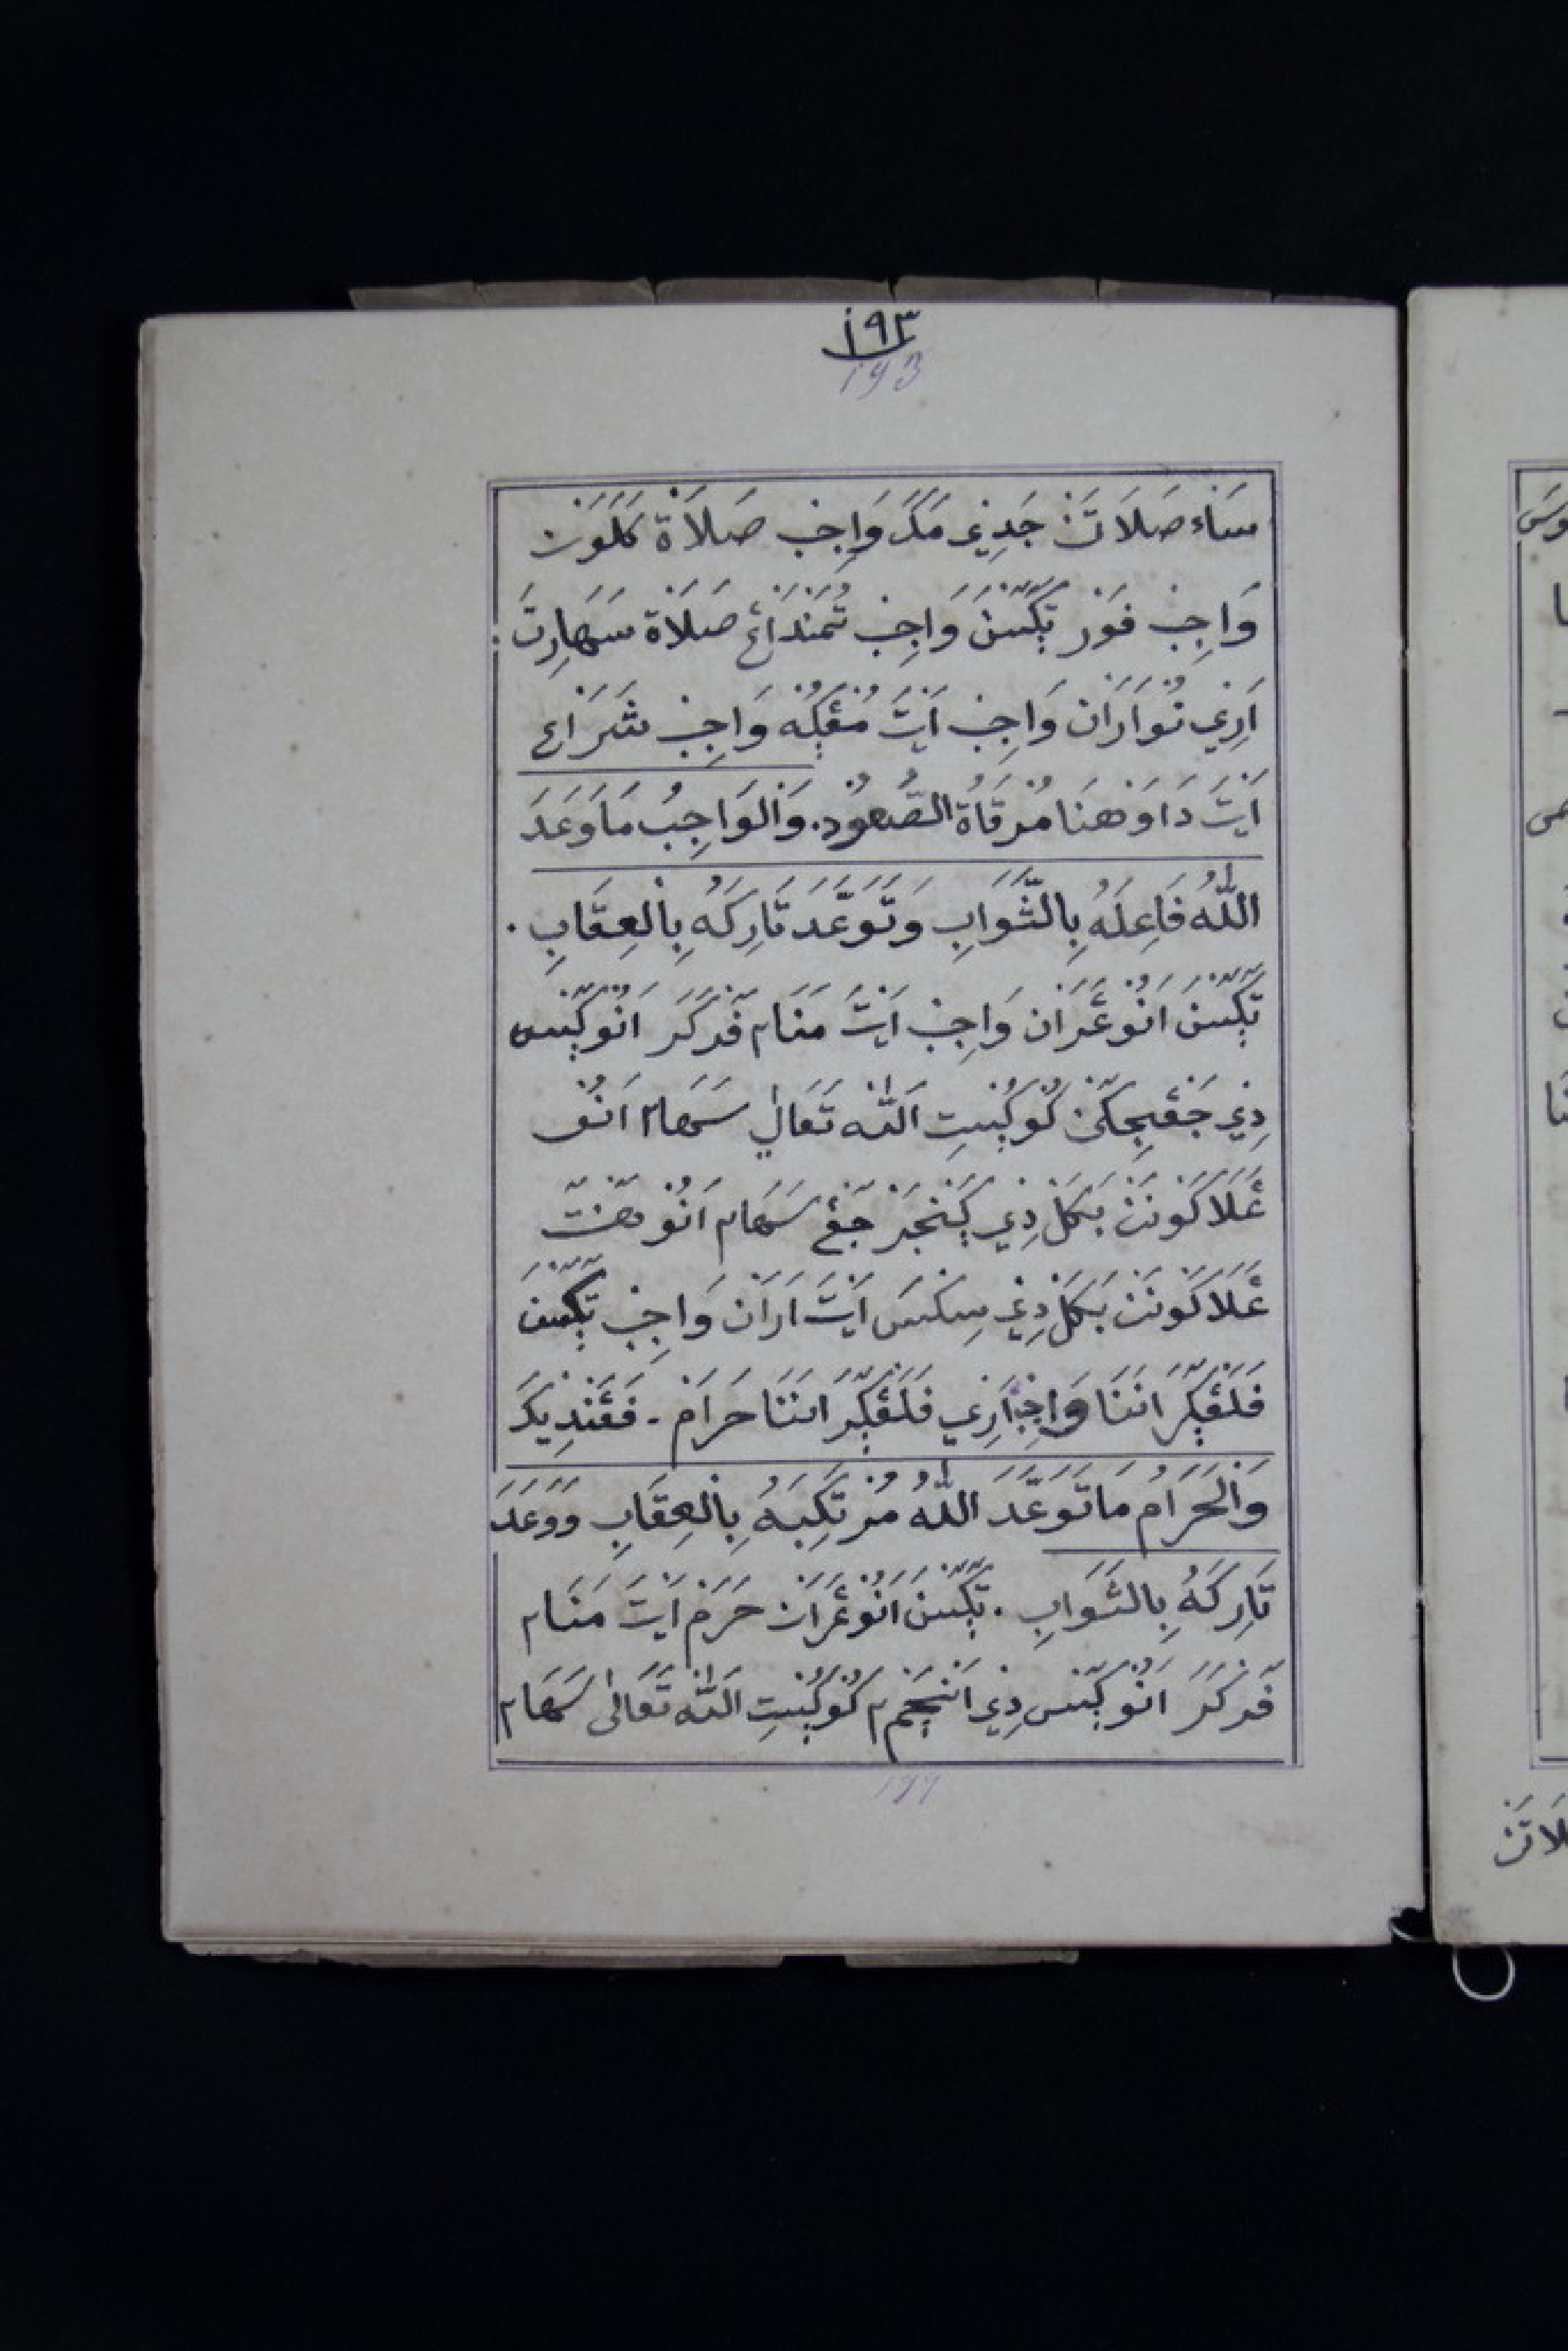 ١٩٣
193
سَاء صَلَاتَنْ جَدِيْ مَكَ وَاجِبْ صَلَاةْ كَلَوَنْ
وَاجِبْ فَوْرْ تٓڮٓسْنَ وَاجِبْ تُمَنْدَاڠْ صَلَاةْ سَهَارِتَ.
اَرِيْ نُوْ اَرَانْ وَاجِبْ اَيْتَ مُڠْڮُهْ وَاجِبْ شَرَاع
اَيْتَ دَاوَهْنَا مُرْقَاةُ الصُّعُوْدِ. وَالْوَاجِبُ مَا وَعَدَ
اللّٰهُ فَاعِلَهُ بِالثَّوَابِ وَتَوَعَّدَ تَارِكَهُ بِالْعِقَابِ.
تٓڮٓسْنَ اَنُوْ ڠَرَانْ وَاجِبْ اَيْتَ مَنَام فٓرْكَرَ اَنُوْ ڮٓسْ
دِيْ جَڠْجِيْكٓنْ كُوْ ڮُسْتِ اَللّٰه تَعَالٰي سَهَام اَنُوْ
ڠَلَاكَوْنَنْ بَكَلْ دِيْ ڮَنْجَرْ جَڠْ سَهَام اَنُوْ هٓنْتٓ
ڠَلَاكَوْنَنْ بَكَلْ دِيْ سِكْسَ اَيْتَ اَرَانْ وَاجِبْ تٓڮٓسْنَ
فَلَڠْڮَرَانَنَا وَاجِبْ اَرِيْ فَلَڠْڮَرَانَنَا حَرَامْ. فَڠَنْدِيْكَ
وَالْحَرَامُ مَا تَوَعَّدَ اللّٰهُ مُرْتَكِبَهُ بِالْعِقَابِ وَوَعَدَ
تَارِكَهُ بِالثَّوَابِ. تٓڮٓسْنَ اَنُوْ ڠَرَانْ حَرَمْ اَيْتَ مَنَام
فٓرْكَرَ اَنُوْ ڮٓسْ دِيْ اَنْچَم٢ كُوْ ڮُسْتِ اَللّٰه تَعَالٰى سَهَام